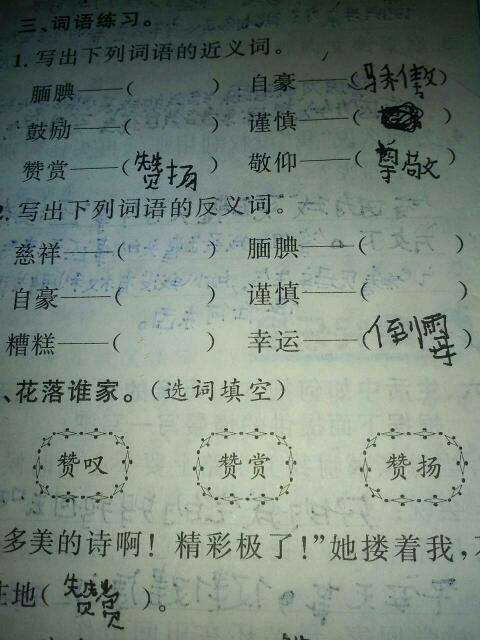 三、词语练习。
1. 写出下列词语的近义词。
腼腆——(　　) 自豪——(骄傲)
鼓励——(　　) 谨慎——(　　)
赞赏——(赞扬) 敬仰——(尊敬)
2. 写出下列词语的反义词。
慈祥——(　　) 腼腆——(　　)
自豪——(　　) 谨慎——(　　)
糟糕——(　　) 幸运——(倒霉)
、花落谁家。(选词填空)
赞叹 赞赏 赞扬
多美的诗啊！精彩极了！”她搂着我，
地(赞赏)。